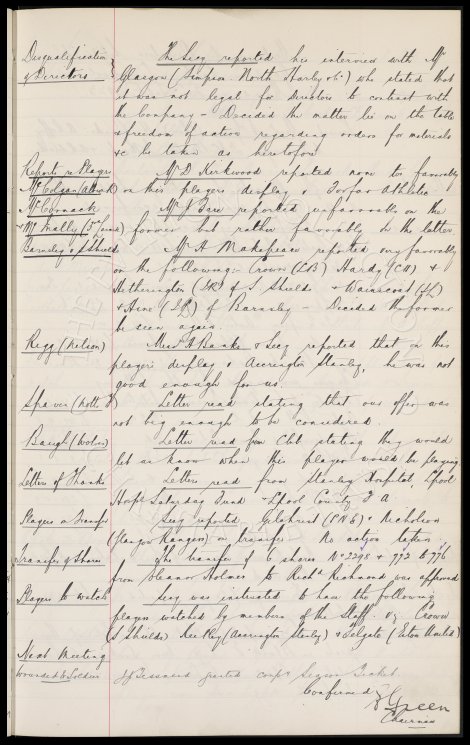 Disqualification The Secy reported his interview with Mr
of Directors Glasgow (Simpson North Harley &c) who stated that
it was not legal for Directors to contract with
the Company - Decided the matter lie on the table
& freedom of action regarding orders for materials
&c be taken as heretofore
Reports re Players Mr D. Kirkwood reported non too favorably
McColgan (Albion R) on this players display v Forfar Athletic
McCormack Mr J. reported unfavorably on the
& McNally former but rather favorably on the latter
Barnsley v S Shields Mr A Makepeace reported very favorably
on the following:- Crown (LB) Hardy (CH) &
Hetherington (IR) of S. Shields & Wainscoat (IL)
& Hine (IR) of Barnsley - Decided the former
be seen again.
Rigg (Nelson) Messrs Banks & Secy reported that on this
players display v Accrington Stanley, he was not
good enough for us.
Spaven (Notts F) Letter read stating that our offer was
not big enough to be considered.
Baugh (Wolves) Letter read from Club stating they would
let us know when this player would be playing
Letters of Thanks Letters read from Stanley Hospital, Lpool
Hospl Saturday Fund & Lpool County F A
Players on Transfer Secy reported Gilchrist (PNE) & Nicholson
(Glasgow Rangers) on transfer. No action taken.
Transfer of Shares The transfer of 6 shares No 2298 & 772 to 776
from Eleanor Holmes to Richd Richmond was approved
Players to watch Secy was instructed to have the following
players watched by members of the Staff. viz Crown
(S Shields) (Accrington Stanley) & Tolgate (Seton United)
Next Meeting
Wounded Soldiers granted compy Season Ticket
Confirmed
Green
Chairman